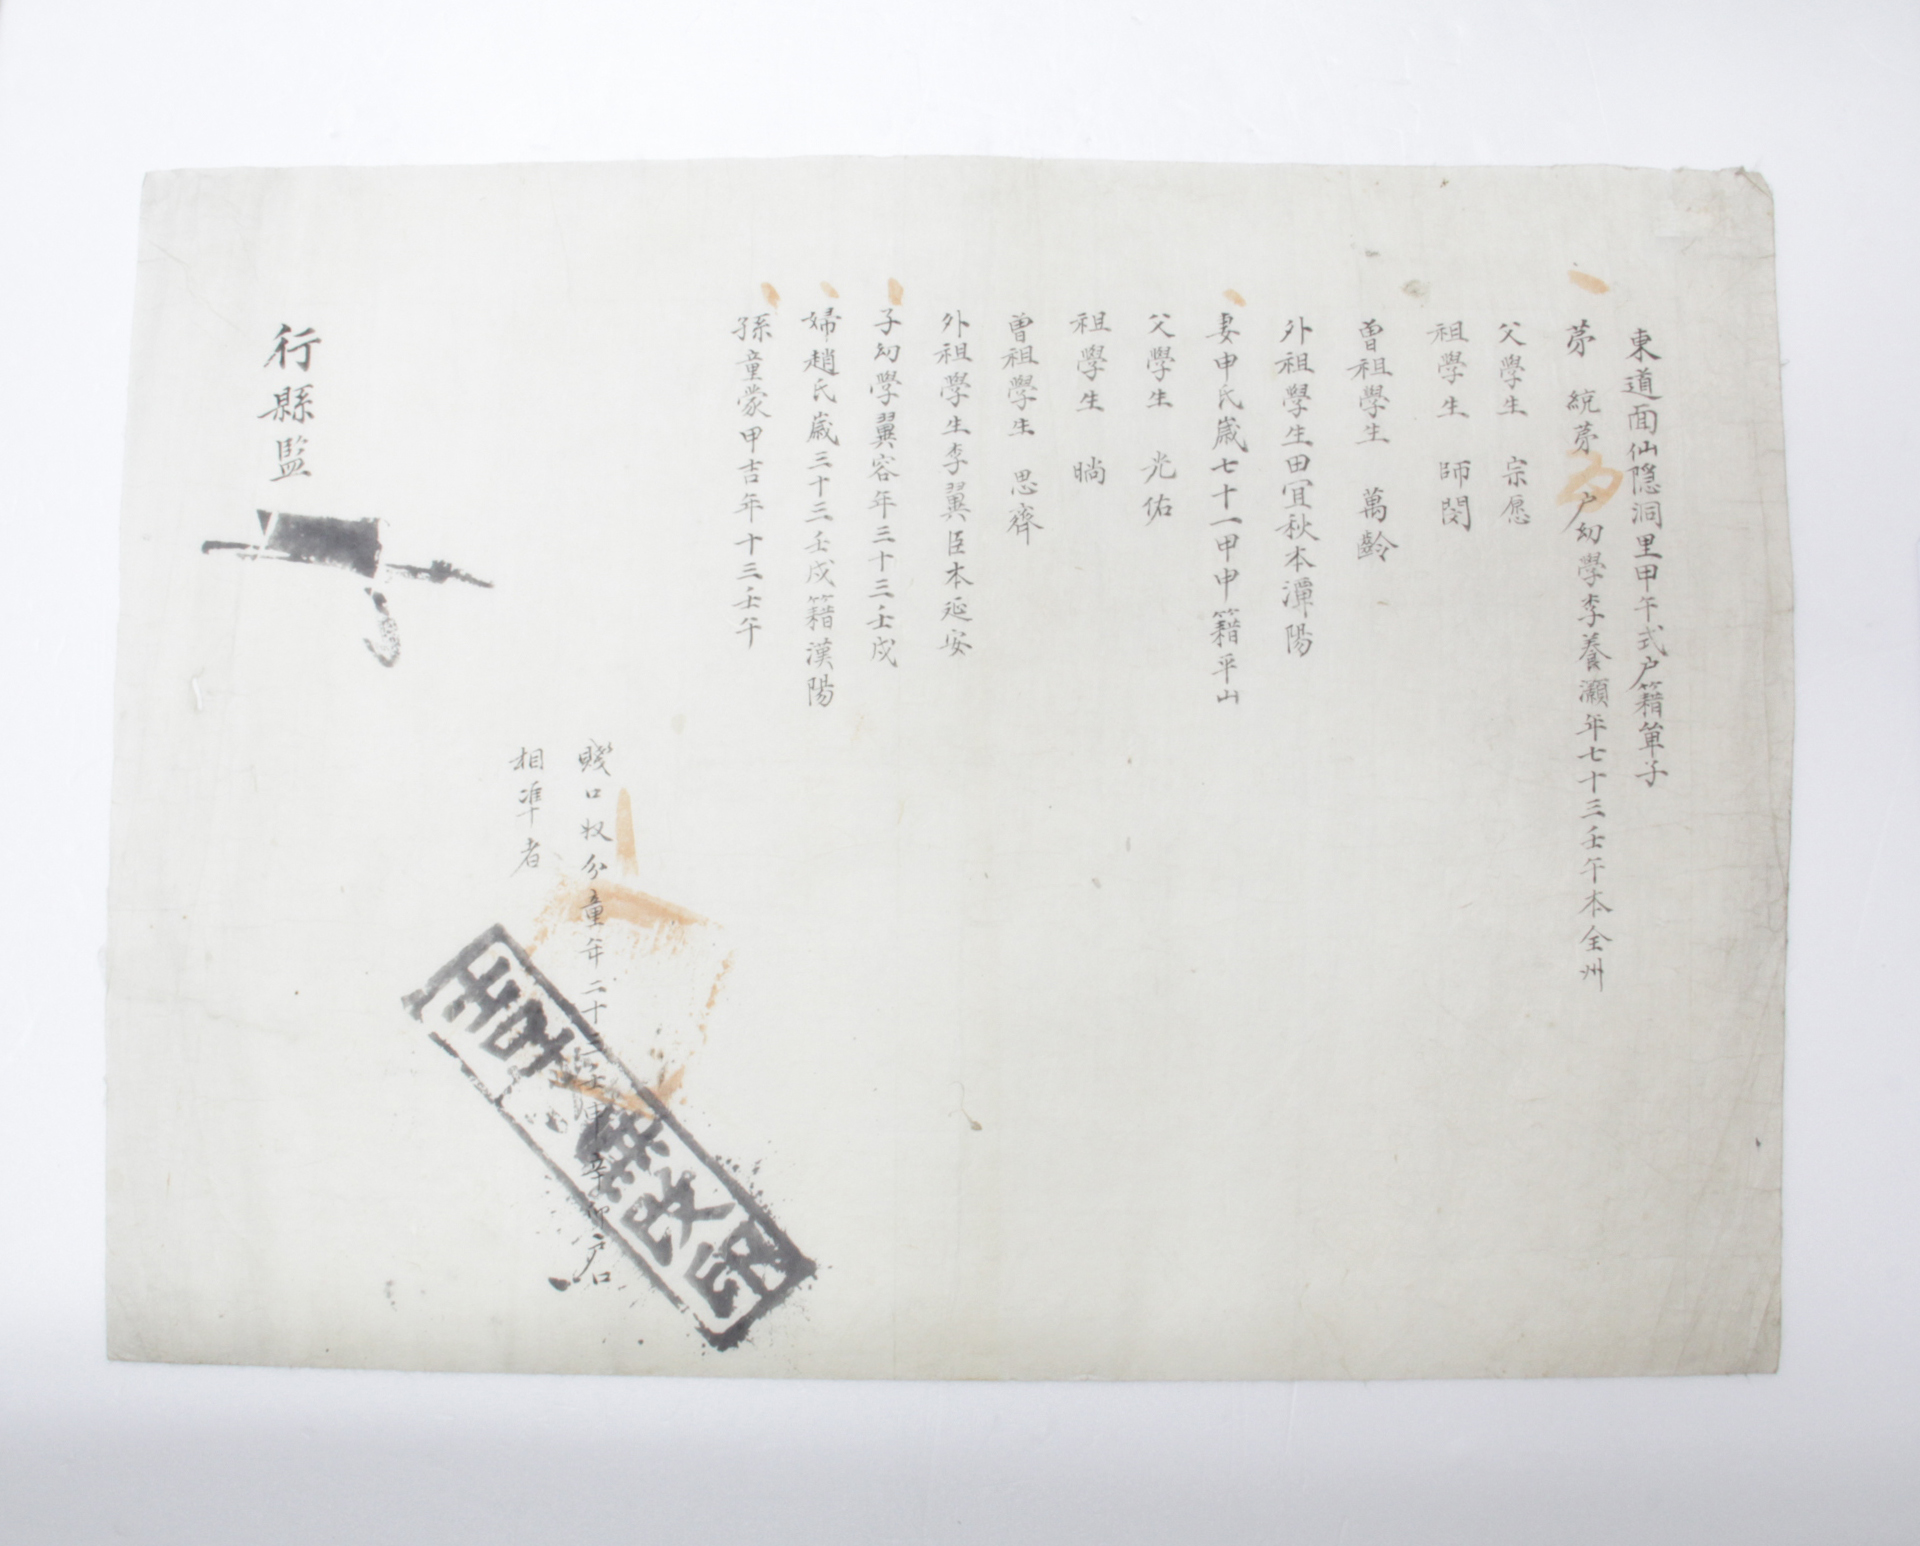 東道面仙隱洞里甲午式户籍單子
苐 統苐 户幼學李養灝年七十三壬午本全州
父學生 宗愿
祖學生 師閔
曾祖學生 萬齡
外祖學生田冝秋本潭陽
妻申氏歲七十一甲申籍平山
父學生 光佑
祖學生 晌
曾祖學生 思齊
外祖學生李翼臣本延安
子幼學翼容年三十三壬戌
婦趙氏歲三十三壬戌籍漢陽
孫童蒙甲吉年十三壬午
賤口奴分童年二十三壬申 辛卯户口
相凖者
行縣監
改印